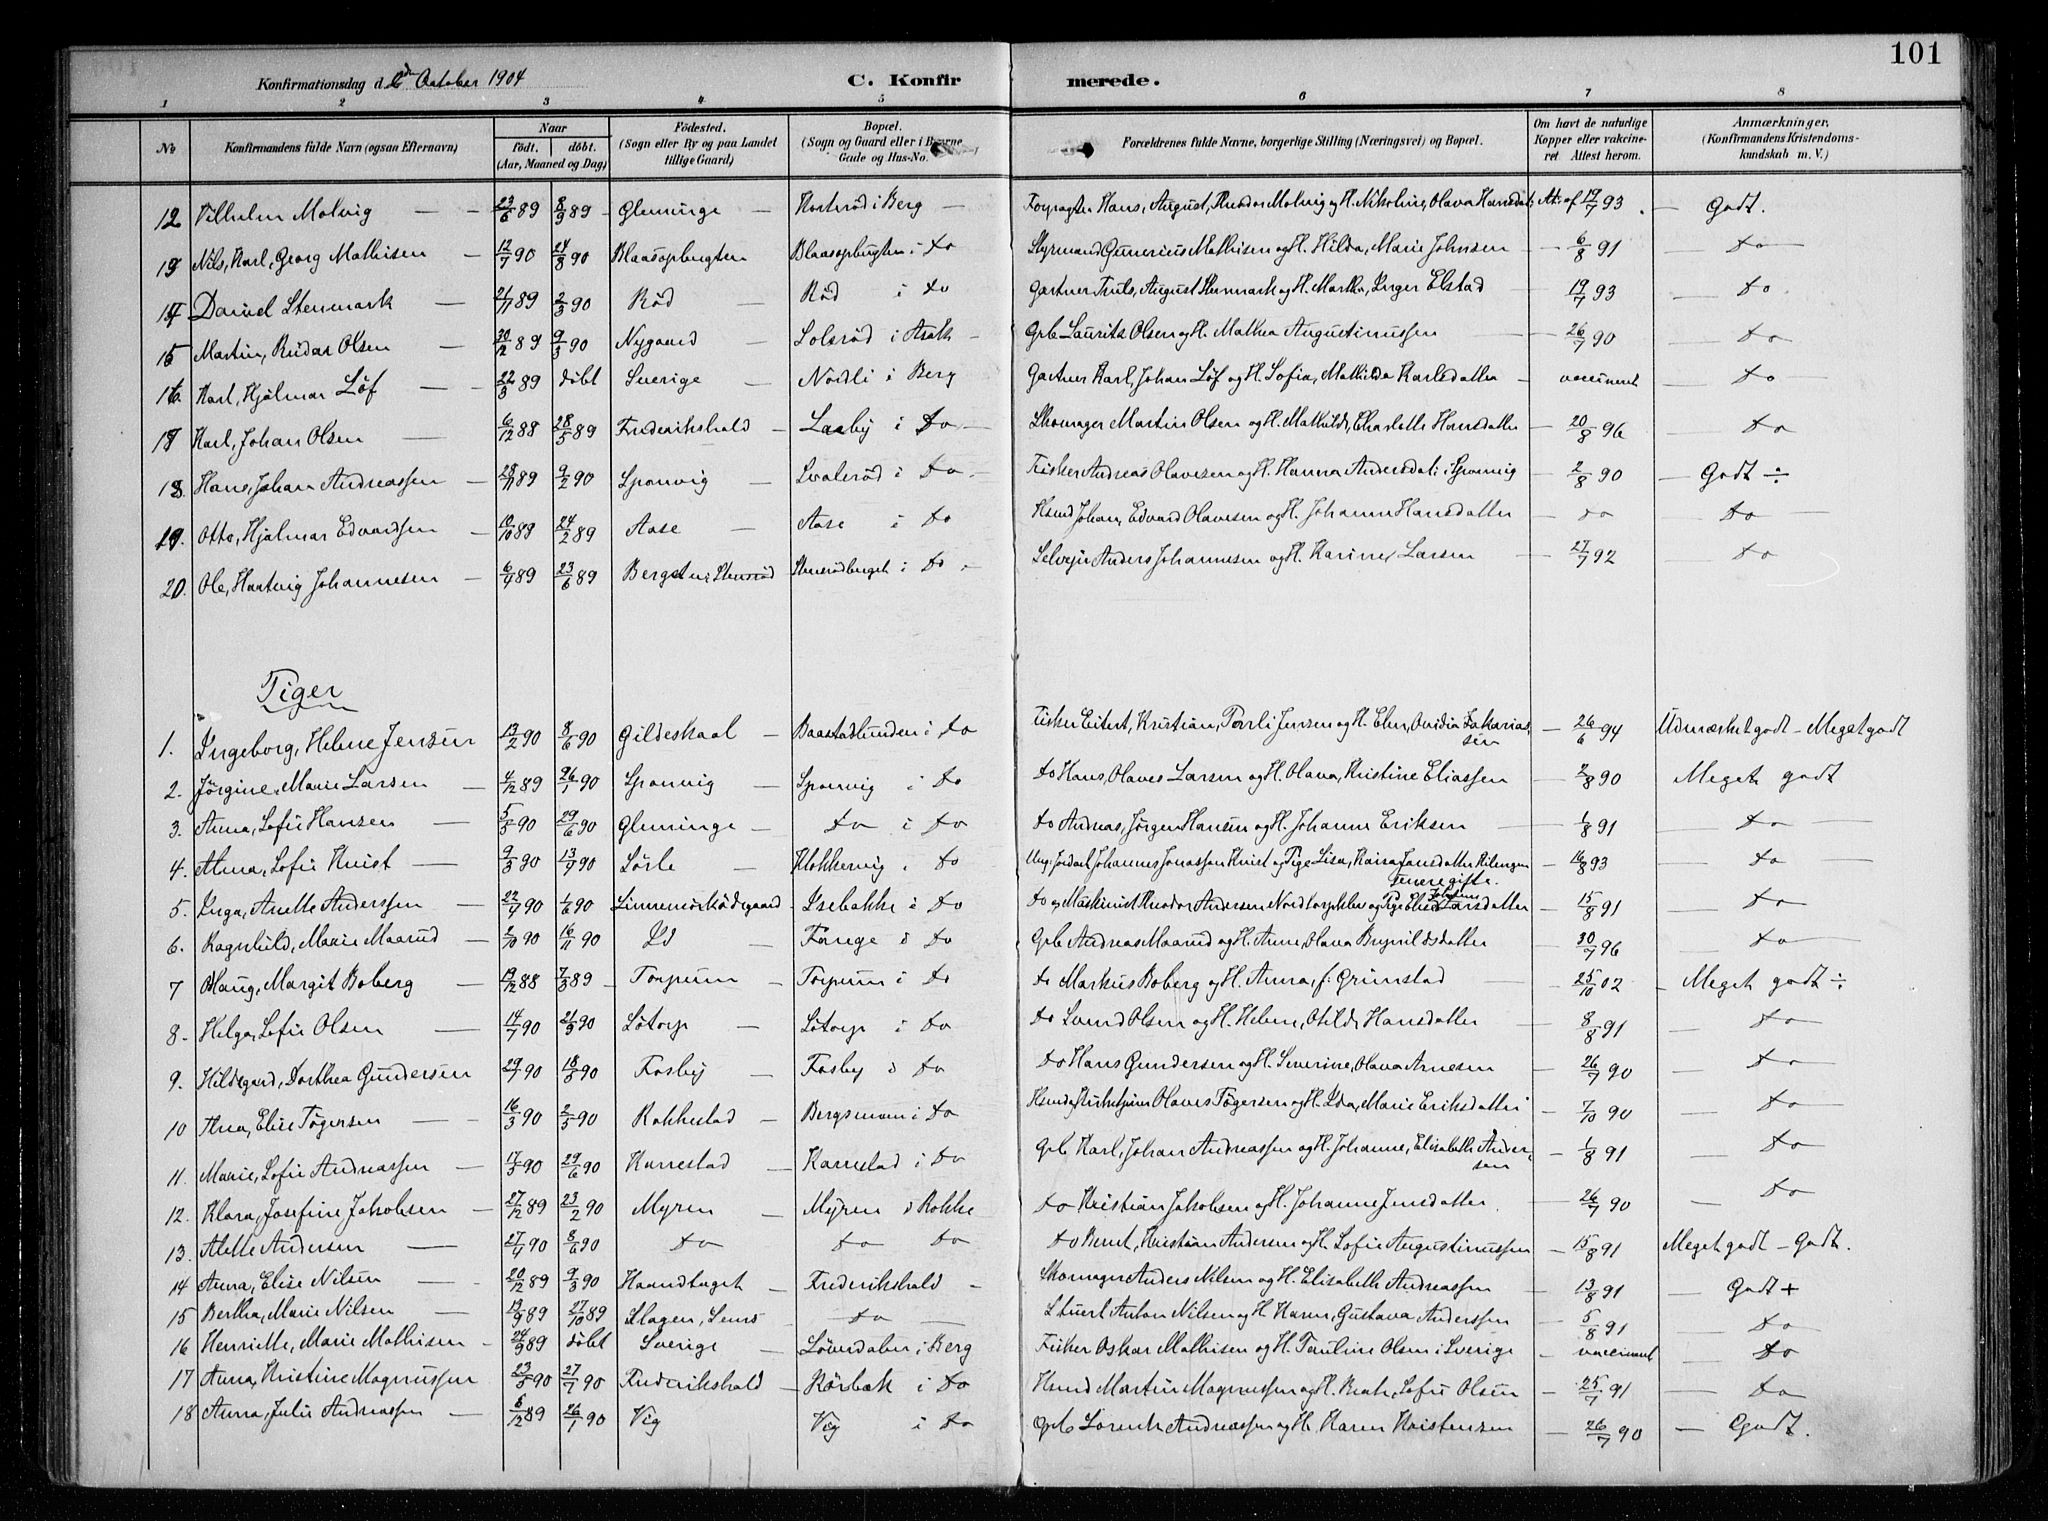 101
Konfirmationsdag d. 2den October 1904 C. Konfirmerede.
1 2 3 4 5 6 7 8
No
Konfirmandens fulde Navn (ogsaa Efternavn)
Naar
födt. döbt.
(Aar, Maaned og Dag)
Födested.
(Sogn eller By og paa Landet
tillige Gaard)
Bopæl.
(Sogn og Gaard eller i Byerne
Gade og Hus-No.
Forældrenes fulde Navne, borgerlige Stilling (Næringsvei) og Bopæl.
Om havt de naturlige
Kopper eller vakcine-
ret Attest herom.
Anmærkninger,
(Konfirmandens Kristendoms-
kundskab m. V.)
12 Vilhelm Molvig — 23/6 89 8/9 89 Glemminge — i Berg — Forpagter Hans, August, Theodor Molvig og H. Nikoline, Olava Hansdat: At: af 17/7 93 — Godt.
13 Nils, Karl, Georg Mathisen — 12/7 90 24/8 90 Blaasopbugten Blaasopbugten i do Styrmand Gunerius Mathisen og H. Hilda, Marie Johnsen — 6/8 91 — do —
14 Daniel Stenmark — 21/11 89 2/3 90 Röd — Röd i do Gartner Truls, August Stenmark og H. Martha, Inger Elstad — 19/7 93 — do
15 Martin, Reidar Olsen — 30/12 89 9/3 90 Nygaard — Solsröd i Asak — Grb Laurits Olsen og H. Mathea Augustinussen — 26/7 90 — do
16. Karl, Hjalmar Löf — 22/3 89 döbt Sverige — Nordli i Berg Gartner Karl, Johan Löf og H. Sofia, Mathilda Karlsdatter — vaccineret — do —
17 Karl, Johan Olsen — 6/12 88 28/5 89 Frederikshald — Laaby i do — Skomager Martin Olsen og H. Mathilde, Charlotte Hansdatter — 20/8 96 — do
18. Hans, Johan Andreassen — 28/11 89 9/2 90 Sponvig — Svaleröd i do — Fisker Andreas Olavesen og H. Hanna Andersdat: i Sponvig — 2/8 90 — Godt ÷
19. Otto, Hjalmar Edvardsen — 10/10 89 24/2 89 Aase — Aase i do Hsmd Johan, Edvard Olavesen og H. Johanne Hansdatter — do — do —
20. Ole, Hartvig Johannesen — 6/4 89 23/6 89 Berg Stensröd Stensrödberget i do — Selveier Anders Johannesen og H. Karine Larsen — 27/7 92 — do
Piger
1. Ingeborg, Helene Jensen 13/2 90 8/6 90 Gildeskaal — Baastadlunden i do Fisker Eilert, Kristian, Jensen og H. Ellen, Ovidia Zakarias-
sen — 26/6 94 Udmærket godt – Meget godt
2. Jörgine, Marie Larsen — 4/12 89 26/1 90 Sponvig — Sponvig i do do Hans, Olaves Larsen og H. Olava, Kristine Eliassen — 2/8 90 Meget godt
3. Anna, Sofie Hansen — 5/5 90 29/6 90 Glemminge — do i do do Andreas, Jörgen Hansen og H. Johanne Eriksen — 1/8 91 — do —
4. Alma, Sofie Kvist — 9/3 90 13/4 90 Sörle — Klokkervig i do Johannes Jonassen Kvist og Pige Lisa, Kaisa Jansdatter
Senere gifte. — 16/8 93 — do —
5. Inga, Anette Anderssen — 22/4 90 1/6 90 — Isebakke i do do og Maskinist Theodor Andersen og Pige Elise Larsdatter — 15/8 91 — do —
6. Ragnhild, Marie Maarud — 2/10 90 16/11 90 Id — Fange i do Grb Andreas Maarud og H. Anne, Olava Brynildsdatter — 30/7 96 — do —
7 Olaug, Margit Boberg — 19/12 88 7/3 89 — Torpum — Torpum i do do Markus Boberg og H. Anna, f: Grimstad — 25/10 02 — Meget godt ÷
8. Helga, Sofie Olsen — 14/7 90 21/9 90 Lötorp — Lötorp i do do Svend Olsen og H. Helene, Otilde Hansdatter — 8/8 91 — do —
9. Hildegard, Dorthea Gundersen 29/7 90 18/5 90 Fosby — Fosby i do do Hans Gundersen og H. Severine, Olava Arnesen — 26/7 90 — do —
10 Thea, Elise Tögersen — 16/3 90 2/5 90 Rokkestad — Bergsmoen i do Hsmd Olaves Tögersen og H. Ida, Marie Eriksdatter — 7/10 90 — do —
11. Marie, Sofie Andreassen — 17/5 90 29/6 90 Karrestad — Karrestad i do Grb Karl, Johan Andreassen og H. Johanne, Elisabeth Ander-
sen — 1/8 91 — do
12. Klara, Josefine Jakobsen — 27/12 89 23/2 90 Myren — Myren i Rokke do Kristian Jakobsen og H. Johanne Jensdatter — 26/7 90 — do
13. Alette Andersen — 27/4 90 8/6 90 do do do do Bernt, Kristian Andersen og H. Sofie Augustinussen — 15/8 91 Meget godt – Godt.
14 Anna, Elise Nilsen — 20/12 89 9/3 90 Haandtaget — Frederikshald — Skomager Anders Nilsen og H. Elisabeth Andreassen — 13/8 91 — Godt +
15 Bertha, Marie Nilsen — 19/9 89 27/10 89 Slagen, — do — Stuert Anton Nilsen og H. Karen, Gustava Anderssen — 5/8 91 — do
16 Henriette, Marie Mathisen — 24/9 89 döbt Sverige — Lövdalen i Berg Fisker Oskar Mathisen og H. Pauline Olsen i Sverige — vaccineret — do
17 Anna, Kristine Magnussen 23/5 90 27/7 90 Frederikshald — Körbæk i do Hsmd Martin Magnussen og H. Beate, Sofie Olsen — 25/7 91 — do
18 Anna, Julie Andreassen — 6/12 89 26/1 90 Vig Vig i do Grb Lorentz Andreassen og H. Karen Kristensen — 26/7 90 — Godt.